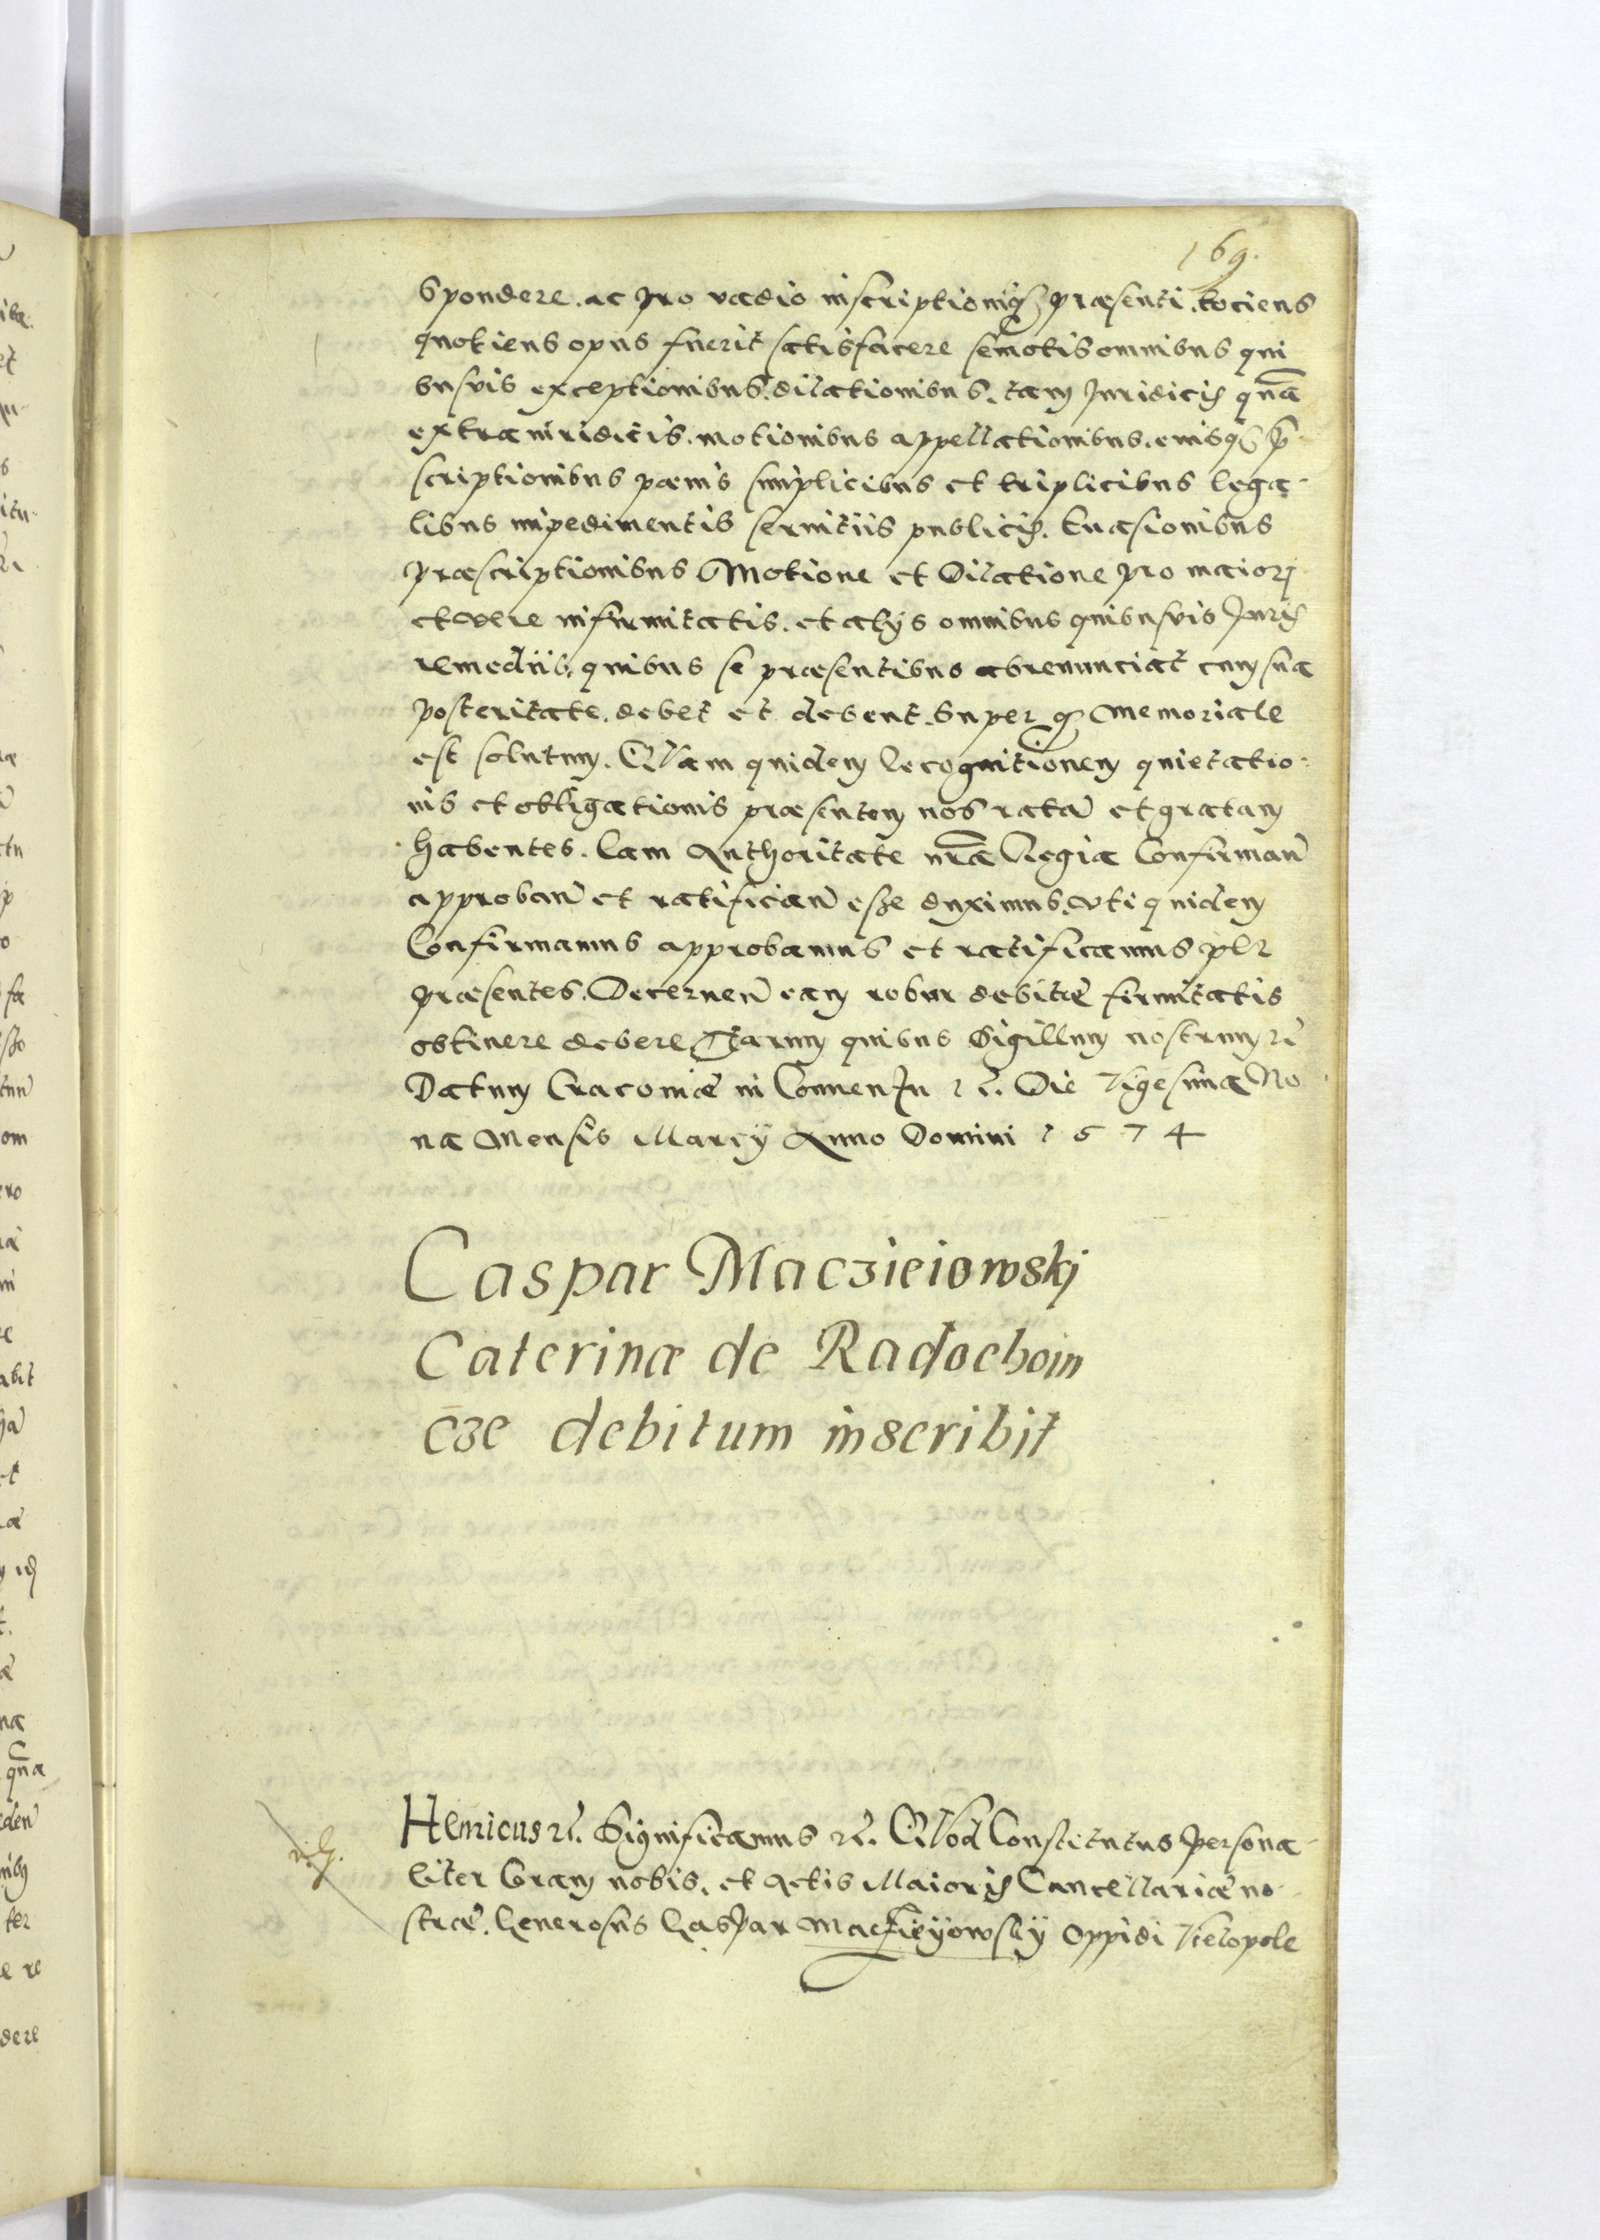 169.
spondere. ac pro vadio inscriptioniq3 præsenti. tociens
quotiens opus fuerit satisfacere semotis omnibus qui
busvis exceptionibus. dilationibus. tam Juridicis quā
extraiuridicis. motionibus appellationibus. eiusq3 p̄
scriptionibus pænis simplicibus et triplicibus lega-
libus impedimentis seruitiis publicis. Euasionibus
præscriptionibus Motione et Dilatione pro maiori
et vere infirmitatis. et alijs omnibus quibusvis Juris
remediis, quibus se præsentibus abrenunciat cum sua
posteritate. debet et debent. Super q3 Memoriale
est solutum. Quam quidem Recognitionem quietatio-
nis et obligationis præsentem nos ratā et gratam
habentes. Eam Authoritate nr̄æ Regia Confirman̄
approban̄ et ratifican̄ esse duximus. Vti quidem
Confirmamus approbamus et ratificamus per
præsentes. Decernen̄ eam robur debitæ firmitatis
obtinere debere Harum quibus Sigillum nostrum rc̄
Datum Cracoviæ in Conuentu rc̄. Die Vigesima No
na Mensis Marcij Anno Domini 1574
Caspar Macʒieiowskj
Caterinæ de Radochoin
cʒe debitum inscribit
Henricus rc̄. Significamus rc̄. Quod Constitutus persona-
liter Coram nobis. et Actis Maioris Cancellariæ no-
stræ. Generosus Caspar Macʒieyowsky Oppidi Vielopole